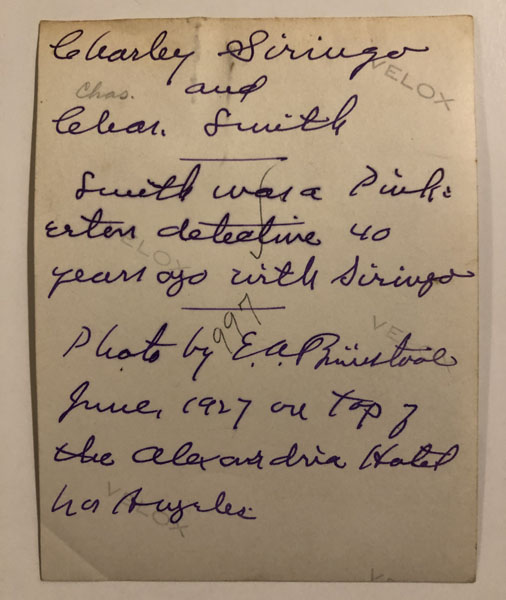 Charley Siringo
VELOX
and
Chas.
Chas. Smith
Smith was a Pink=
erton detective 40
VELOX
years ago with Siringo
997
Photo by E. A. Brininstool
June, 1927 on top of
the Alexandria Hotel
Los Angeles.
VELOX